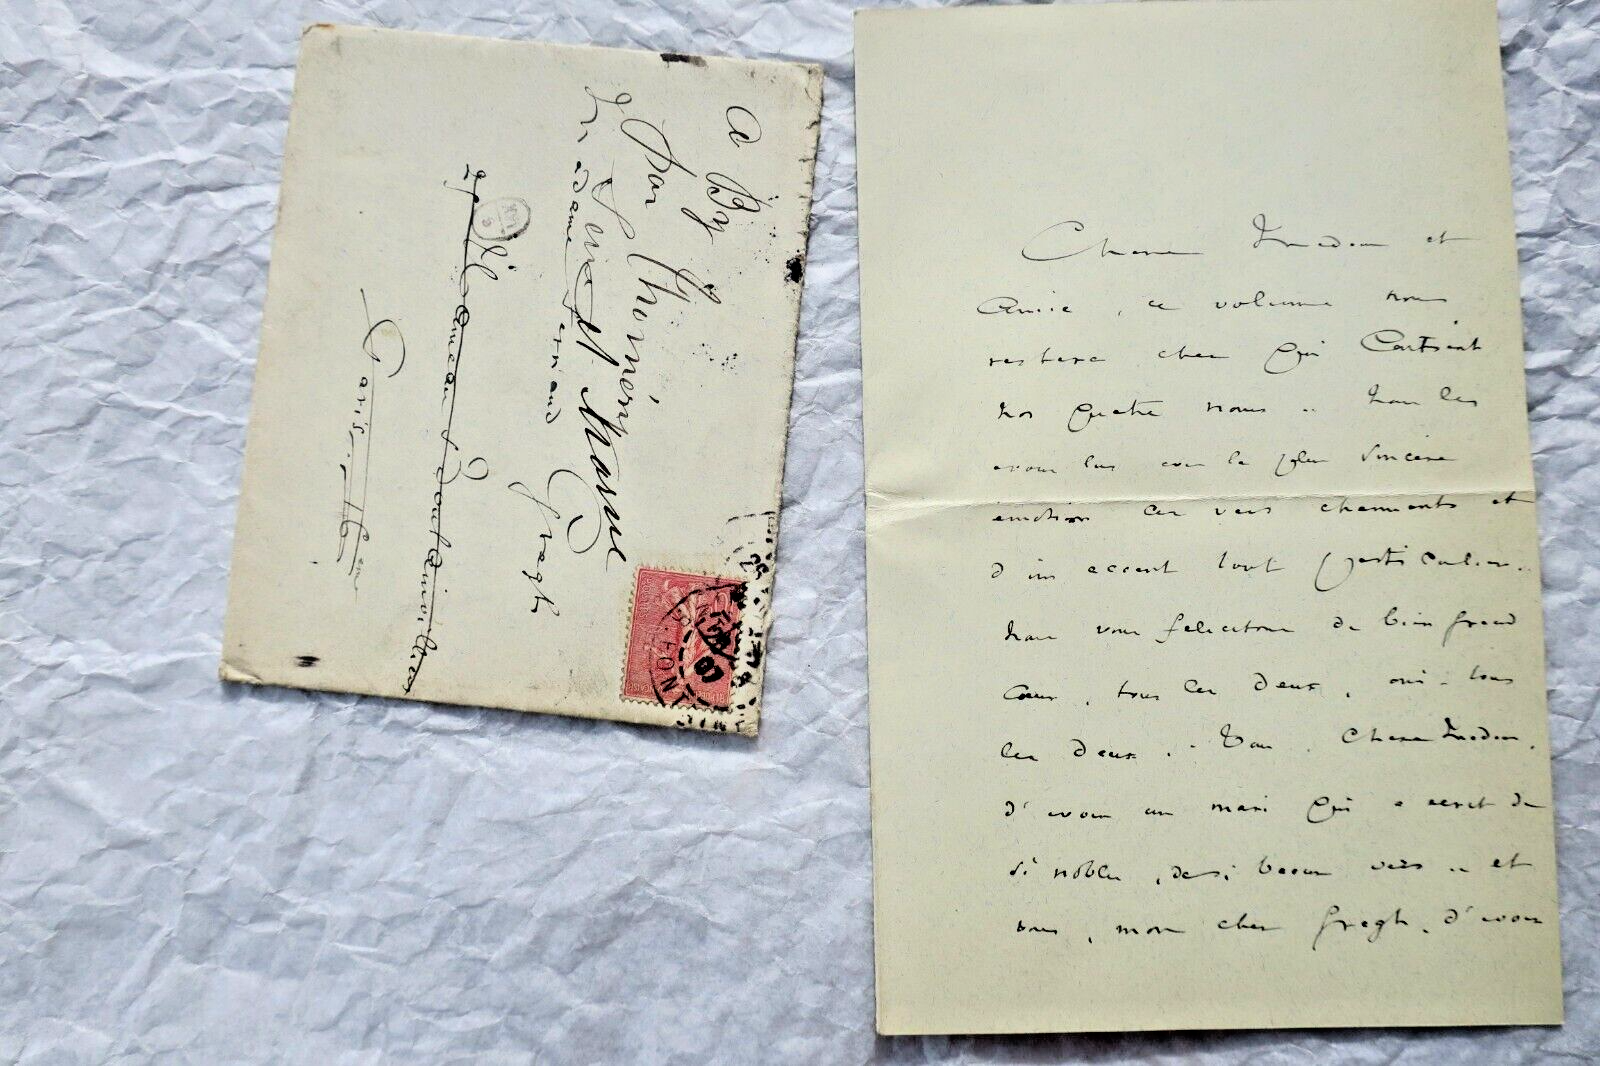 a By
par Thoméry
Seine et Marne
Madame Fernand Gregh
Hameau Boulainvilliers
Paris. 16 eme
07
Chere Madame et
Amie, ce volume nous
restera cher qui contient
nos quatre noms .. Nous les
avons lus avec la plus sincère
émotion ces vers charmants et
d'un accent tout particulier.
Nous vous felicitons de bien grand
coeur, tous les deux, oui - tous
les deux. - Vous, chere Madame,
d'avoir un mari qui a ecrit de
si nobles, de si beaux vers .. et
vous, mon cher Gregh, d'avoir